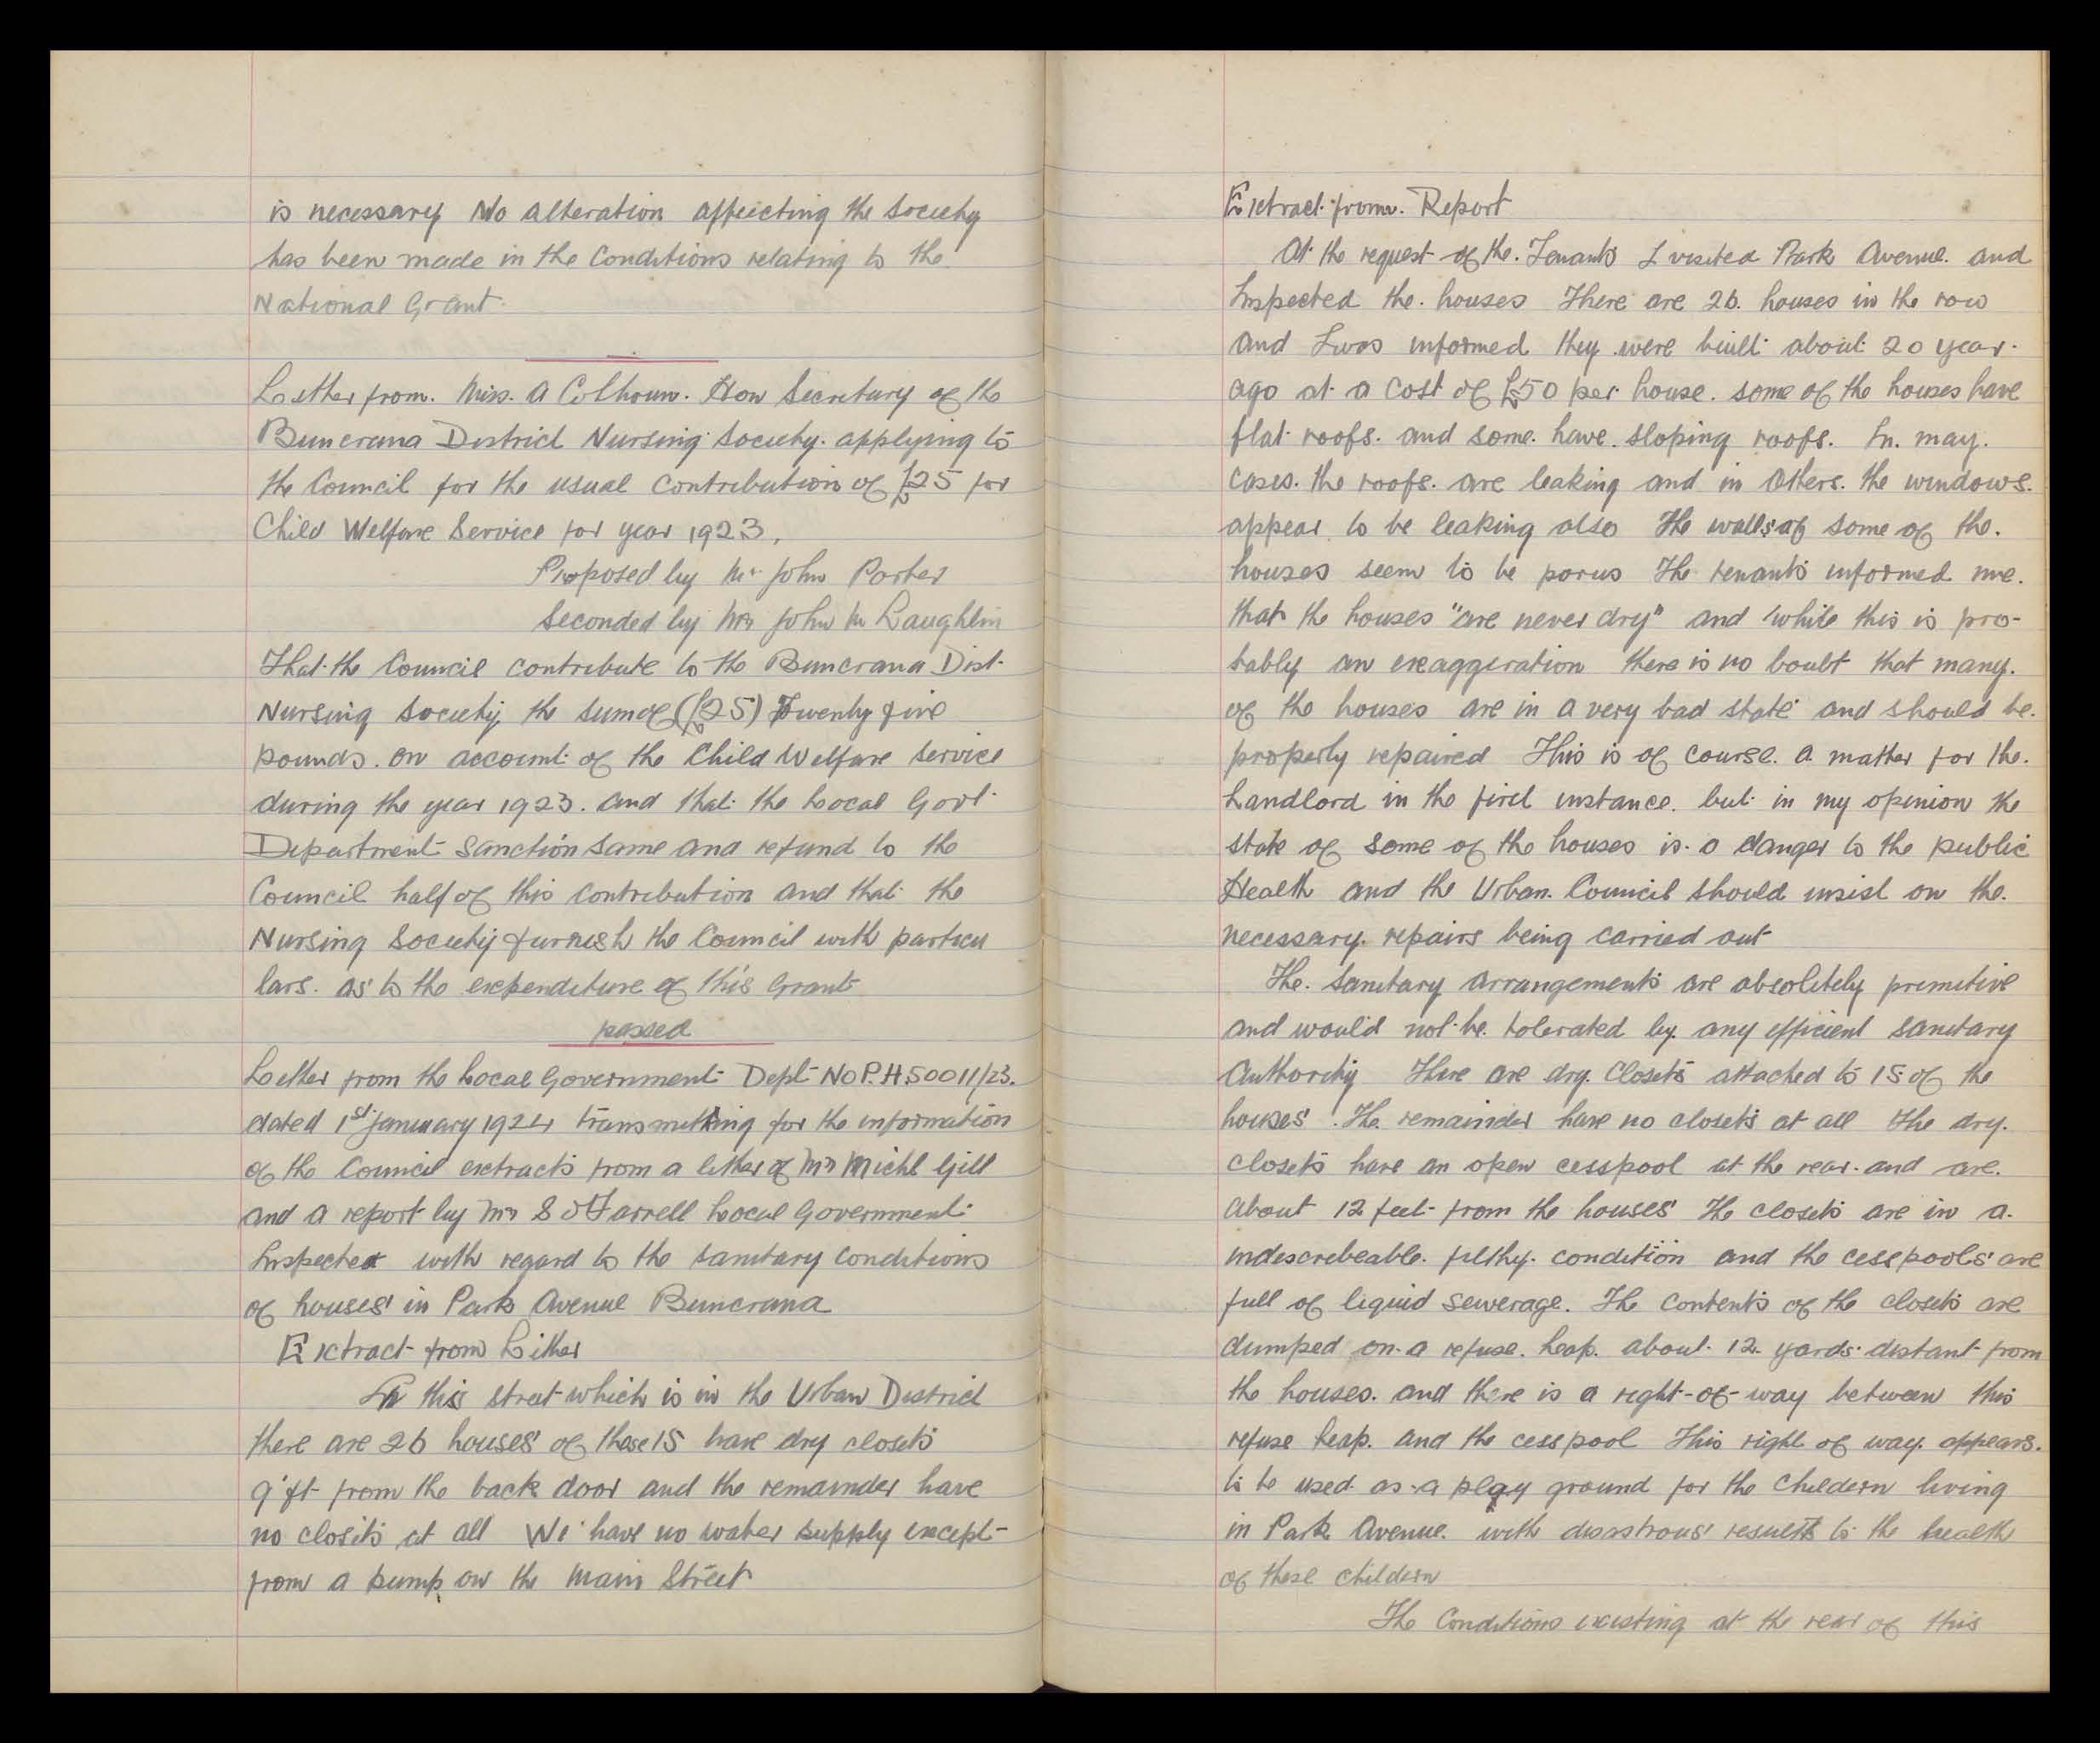 is necessary No alteration affecting the Society
has been made in the Conditions relating to the
National Grant.
Letter from. Miss. A Colhoun. Hon Secretary of the
Buncrana District Nursing Society. applying to
the Council for the usual Contribution of £25 for
Child Welfare Service for year 1923,
Proposed by Mr John Porter
Seconded by Mr John Mc Laughlin
That the Council contribute to the Buncrana Dist.
Nursing Society the sum of (£25) Twenty five
pounds. on account of the Child Welfare Service
during the year 1923. and that the Local Govt.
Department Sanction same and refund to the
Council half of this contribution and that the
Nursing Society furnish the Council with particu
lars. as to the expenditure of this Grant
passed
Letter from the Local Government Dept No P.H.50011/23.
dated 1st January 1924 transmitting for the information
of the Council extracts from a letter of Mr Michl Gill
and a report by Mr S O'Farrell Local Government
Inspector with regard to the sanitary conditions
of houses in Park Avenue Buncrana
Extract from Letter
In this street which is in the Urban District
there are 26 houses of these 15 have dry closets
9 ft from the back door and the remainder have
no closets at all We have no water supply except
from a pump on the Main Street
Extract from. Report
At the request of the. Tenants I visited Park Avenue. and
Inspected the. houses There are 26. houses in the row
and I was informed they were built about 20 year.
ago at a cost of £50 per house. some of the houses have
flat roofs. and some. have. sloping roofs. In. may.
cases. the roofs. are leaking and in others. the windows.
appear to be leaking also The walls of some of the.
houses seem to be porus The tenants informed me.
that the houses "are never dry" and while this is pro-
bably an exaggeration there is no boubt that many.
of the houses are in a very bad state and should be.
properly repaired This is of course. a matter for the.
Landlord in the first instance. but in my opinion the
state of some of the houses is. a danger to the public
Health and the Urban. Council should insist on the.
necessary. repairs being carried out
The. sanitary arrangements are absolutely primitive
and would not be. tolerated by. any efficient sanitary
Authority There are dry. Closets attached to 15 of the
houses. The. remainder have no closets at all The dry.
closets have an open cesspool at the rear. and are.
about 12 feet from the houses The closets are in a.
indescrebeable. filthy. condition and the cesspools are
full of liquid sewerage. The contents of the closets are
dumped on. a refuse. heap. about 12. yards distant from
the houses. and there is a right-of-way between this
refuse heap. and the cesspool This right of way. appears.
to be used. as. a play ground for the childern living
in Park Avenue. with disastrous results to the health
of these childern
The Conditions existing at the rear of this